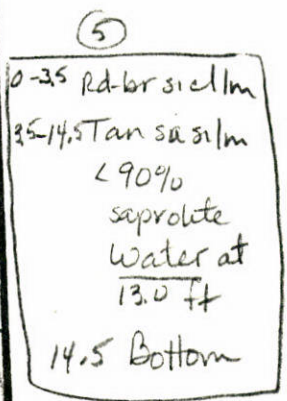 5
0-3.5 Rd-br sicl lm
3.5-14.5 Tan sa si lm
<90%
saprolite
Water at
13.0 ft
14.5 Bottom